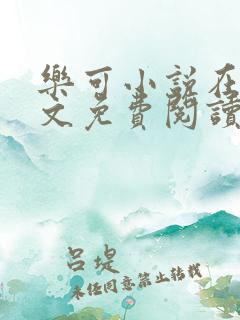 樂可小說在
文免費閱讀
呂堤
未经同意禁止转载